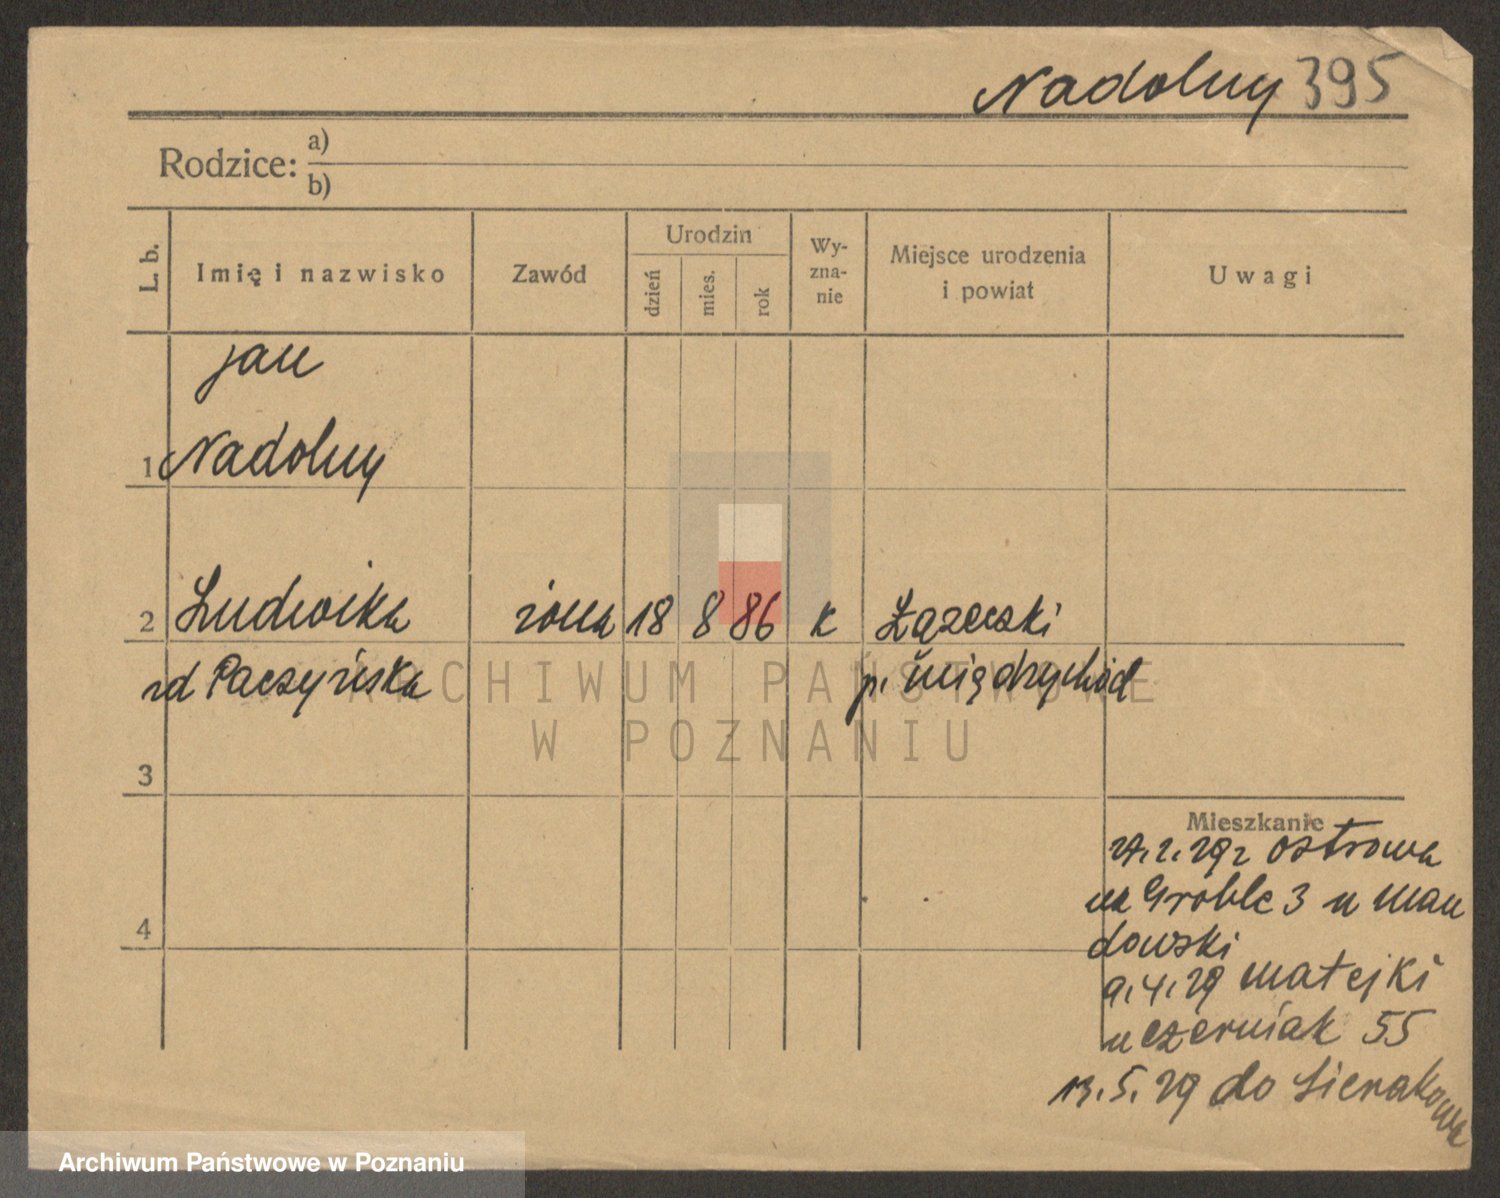 Nadolny 395
Rodzice: a)
b)
L. b.
Imię i nazwisko
Zawód
Urodzin
dzień
mies.
rok
Wy-
zna-
nie
Miejsce urodzenia
i powiat
Uwagi
Jan
1 Nadolny
2 Ludwika żona 18 8 86 k
zd Paczyńska p. Międzychód
ARCHIWUM PAŃSTWOWE
W POZNANIU
3
4
Mieszkanie
29 z Ostrowa
na Groble 3 u Man
dowski
9.4.29 Matejki
u Czerniak 55
13.5.29 do Sierakowa
Archiwum Państwowe w Poznaniu